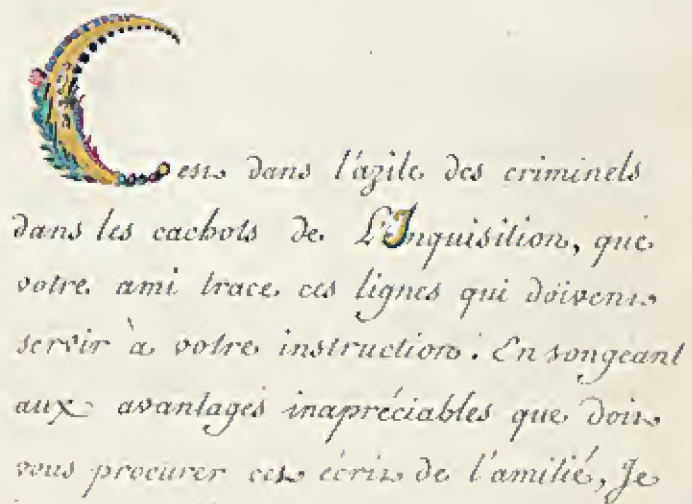 C'est dans l'azile des criminels
dans les cachots de L'Inquisition, que
votre ami trace ces lignes qui doivent
servir à votre instruction. En songeant
aux avantages inapréciables que doit
vous procurer cet écrit de l'amitié, Je